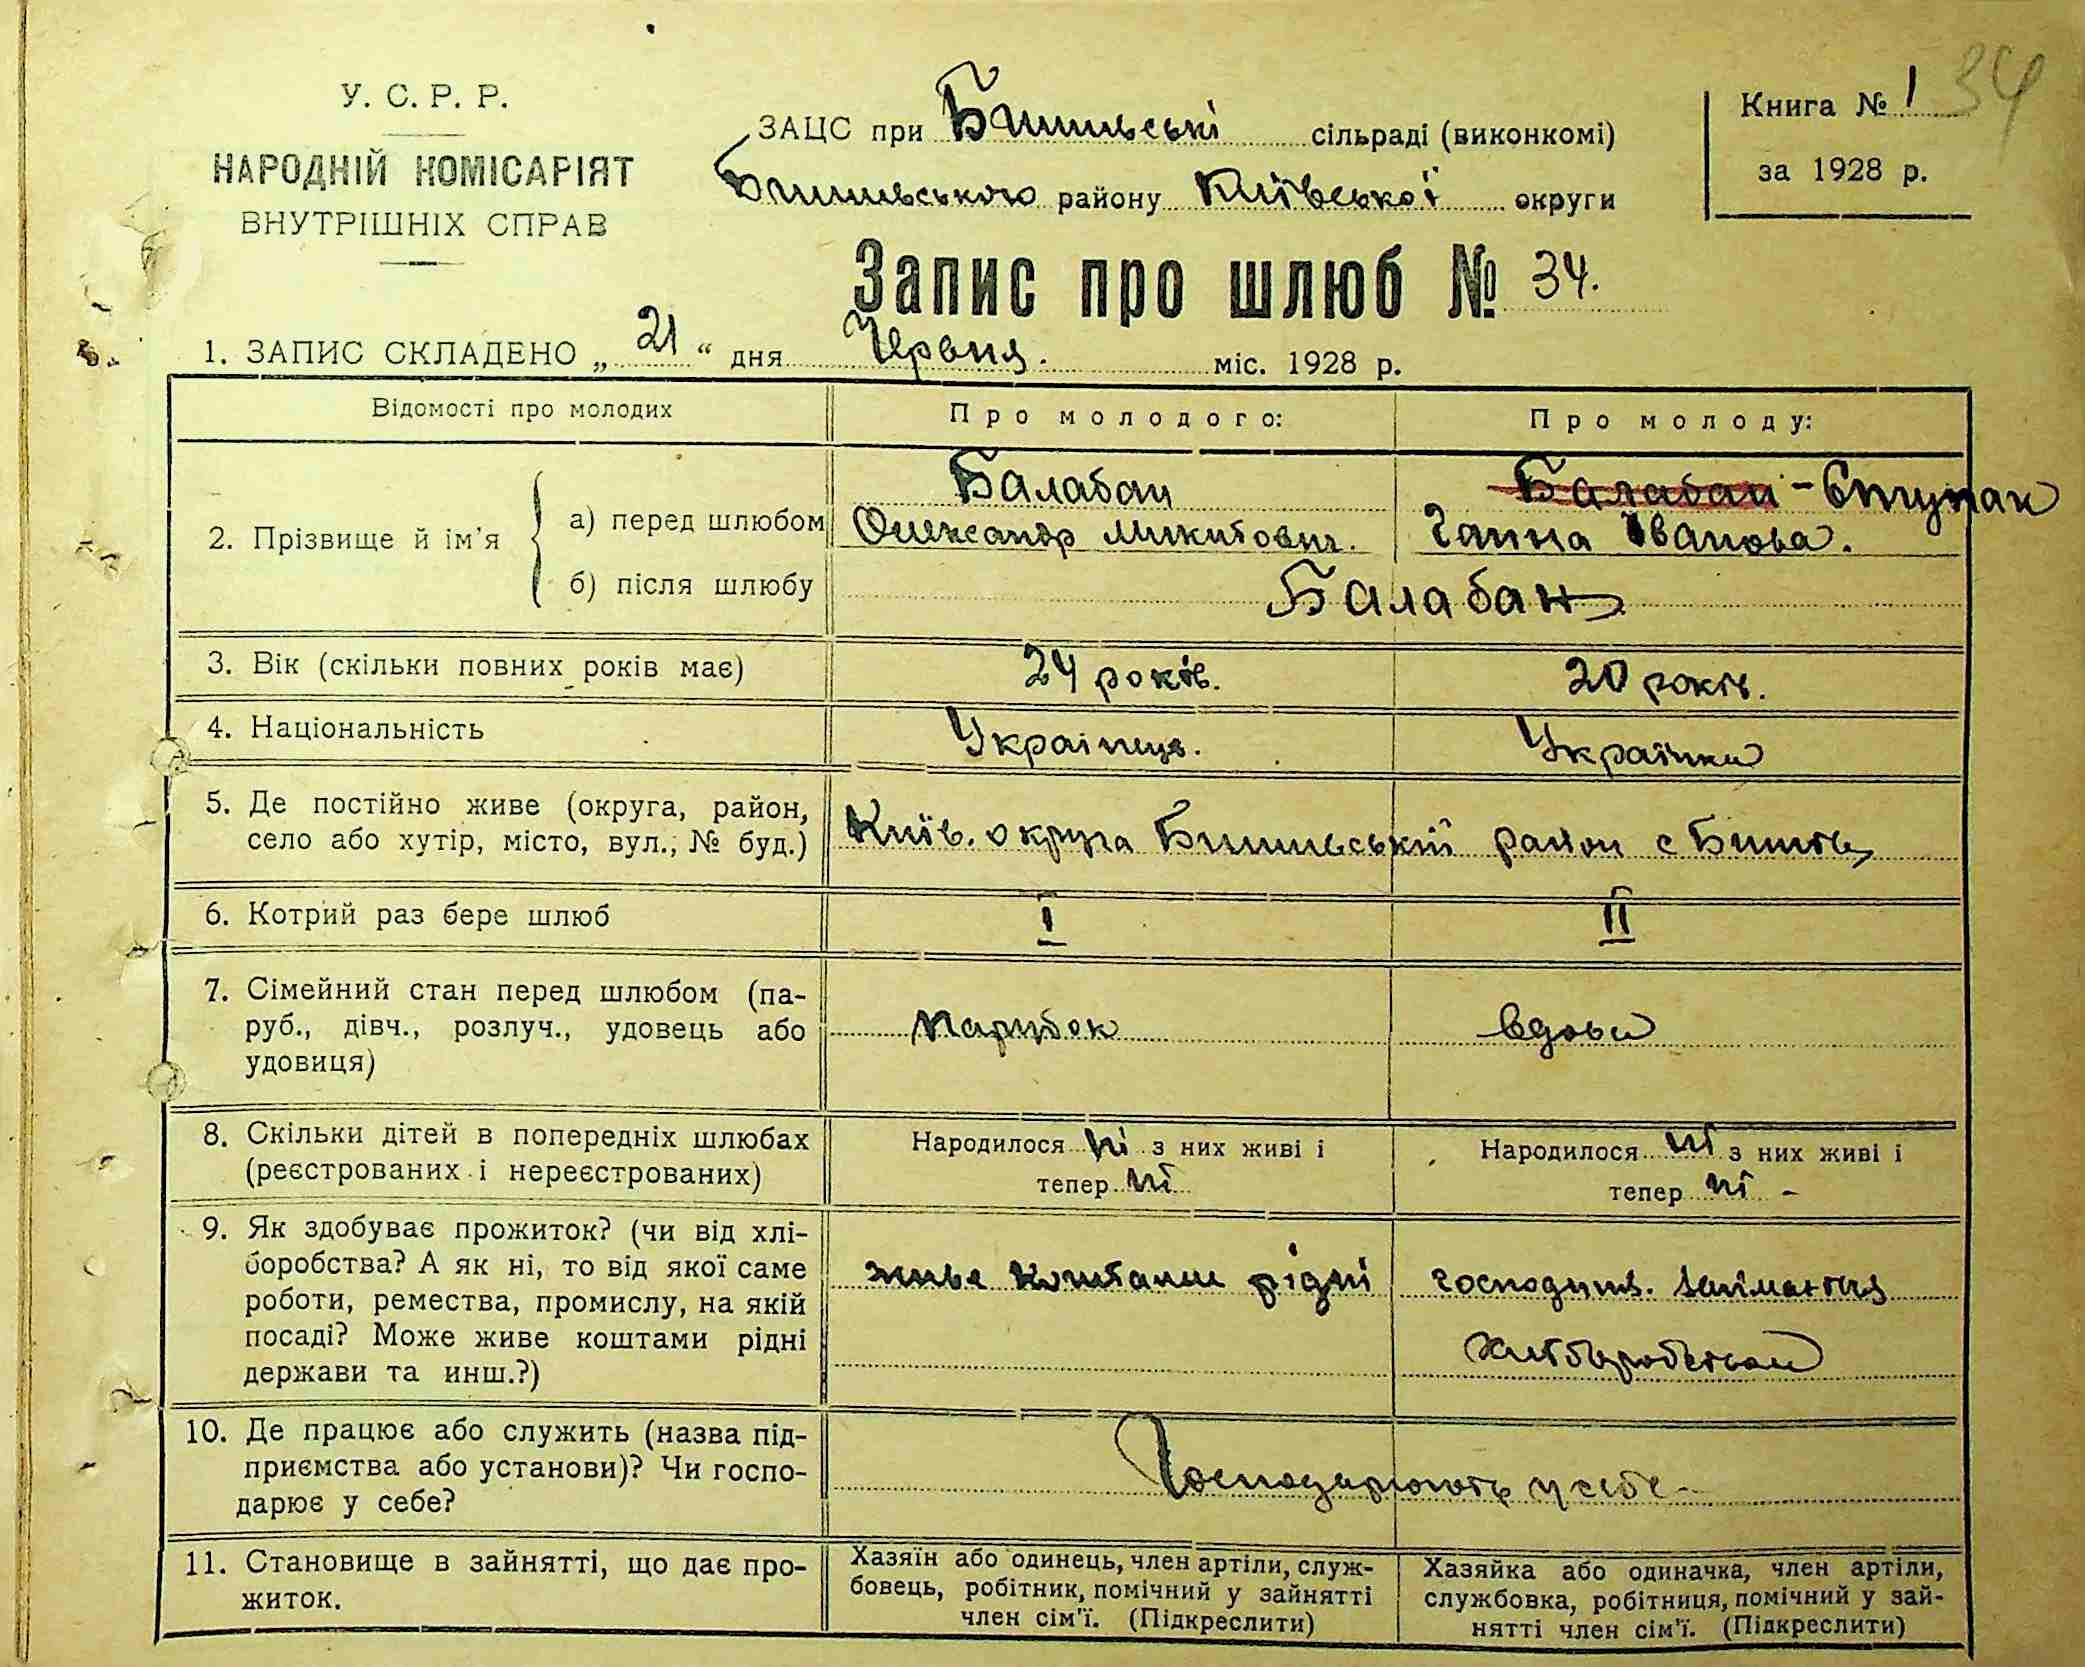 34
У. С. Р. Р.
НАРОДНІЙ КОМІСАРІЯТ
ВНУТРІШНІХ СПРАВ
ЗАЦС при Бишівські сільраді (виконкомі)
Бишівського району Київської округи
Книга № 1
за 1928 р.
Запис про шлюб № 34.
1. ЗАПИС СКЛАДЕНО „ 21 “ дня Червня. міс. 1928 р.
Відомості про молодих Про молодого: Про молоду:
2. Прізвище й ім’я
а) перед шлюбом
Балабан
Олександр Микитович.
Балабан - Ступак
Ганна Іванова.
б) після шлюбу Балабан
3. Вік (скільки повних років має) 24 років. 20 років.
4. Національність Украінець. Українка
5. Де постійно живе (округа, район,
село або хутір, місто, вул., № буд.)
Київ. округа Бишівський район с Бишів
6. Котрий раз бере шлюб I II
7. Сімейний стан перед шлюбом (па-
руб., дівч., розлуч., удовець або
удовиця)
парубок вдова
8. Скільки дітей в попередніх шлюбах
(реєстрованих і нереєстрованих)
Народилося ні з них живі і
тепер ні
Народилося ні з них живі і
тепер ні -
9. Як здобуває прожиток? (чи від хлі-
боробства? А як ні, то від якої саме
роботи, ремества, промислу, на якій
посаді? Може живе коштами рідні
держави та инш.?)
живе коштами рідні
господин. займається
хліборобством
10. Де працює або служить (назва під-
приємства або установи)? Чи госпо-
дарює у себе?
Господарюють у себе -
11. Становище в зайнятті, що дає про-
житок.
Хазяїн або одинець, член артіли, служ-
бовець, робітник, помічний у зайнятті
член сім'ї. (Підкреслити)
Хазяйка або одиначка, член артіли,
службовка, робітниця, помічний у зай-
нятті член сім'ї. (Підкреслити)